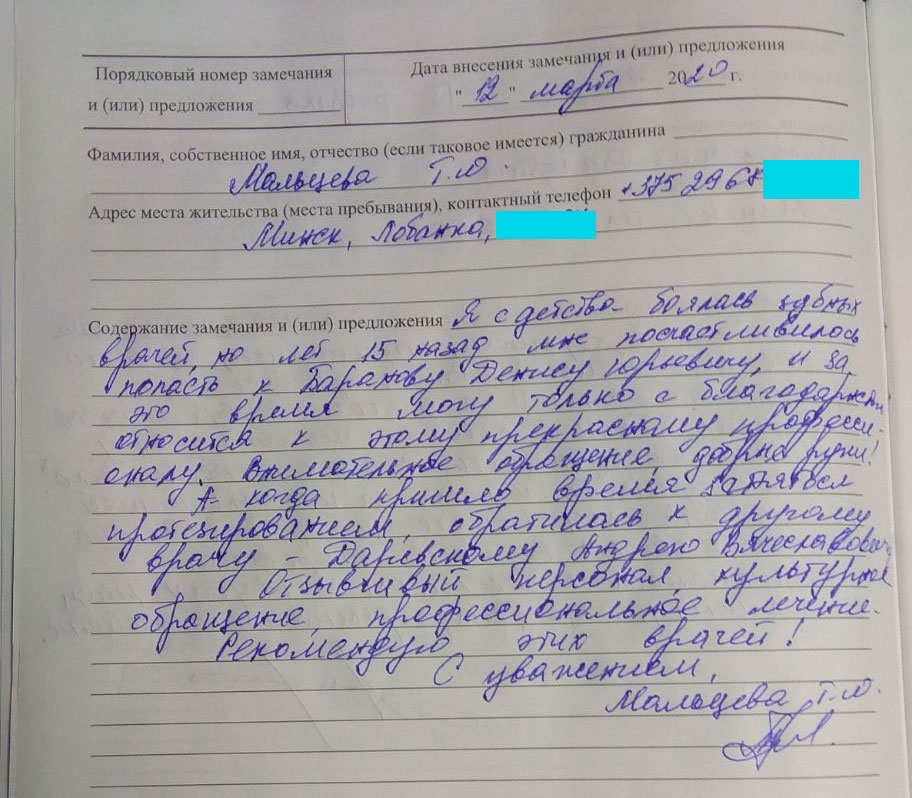 Порядковый номер замечания
и (или) предложения
Дата внесения замечания и (или) предложения
"12" марта 2020 г.
Фамилия, собственное имя, отчество (если таковое имеется) гражданина
Мальцева Т.Ю.
Адрес места жительства (места пребывания), контактный телефон +375 29 68
Минск, Лобанка,
Содержание замечания и (или) предложения Я с детства боялась зубных
врачей, но лет 15 назад мне посчастливилось
попасть к Баранову Денису Юрьевичу, и за
это время могу только с благодарностью
относится к этому прекрасному професси-
оналу. Внимательное обращение, добрые руки!
А когда пришло время заняться
протезированием, обратилась к другому
врачу - Даревскому Андрею Вячеславовичу
Отзывчивый персонал, культурное
обращение, профессиональное лечение.
Рекомендую этих врачей!
С уважением,
Мальцева Т.Ю.